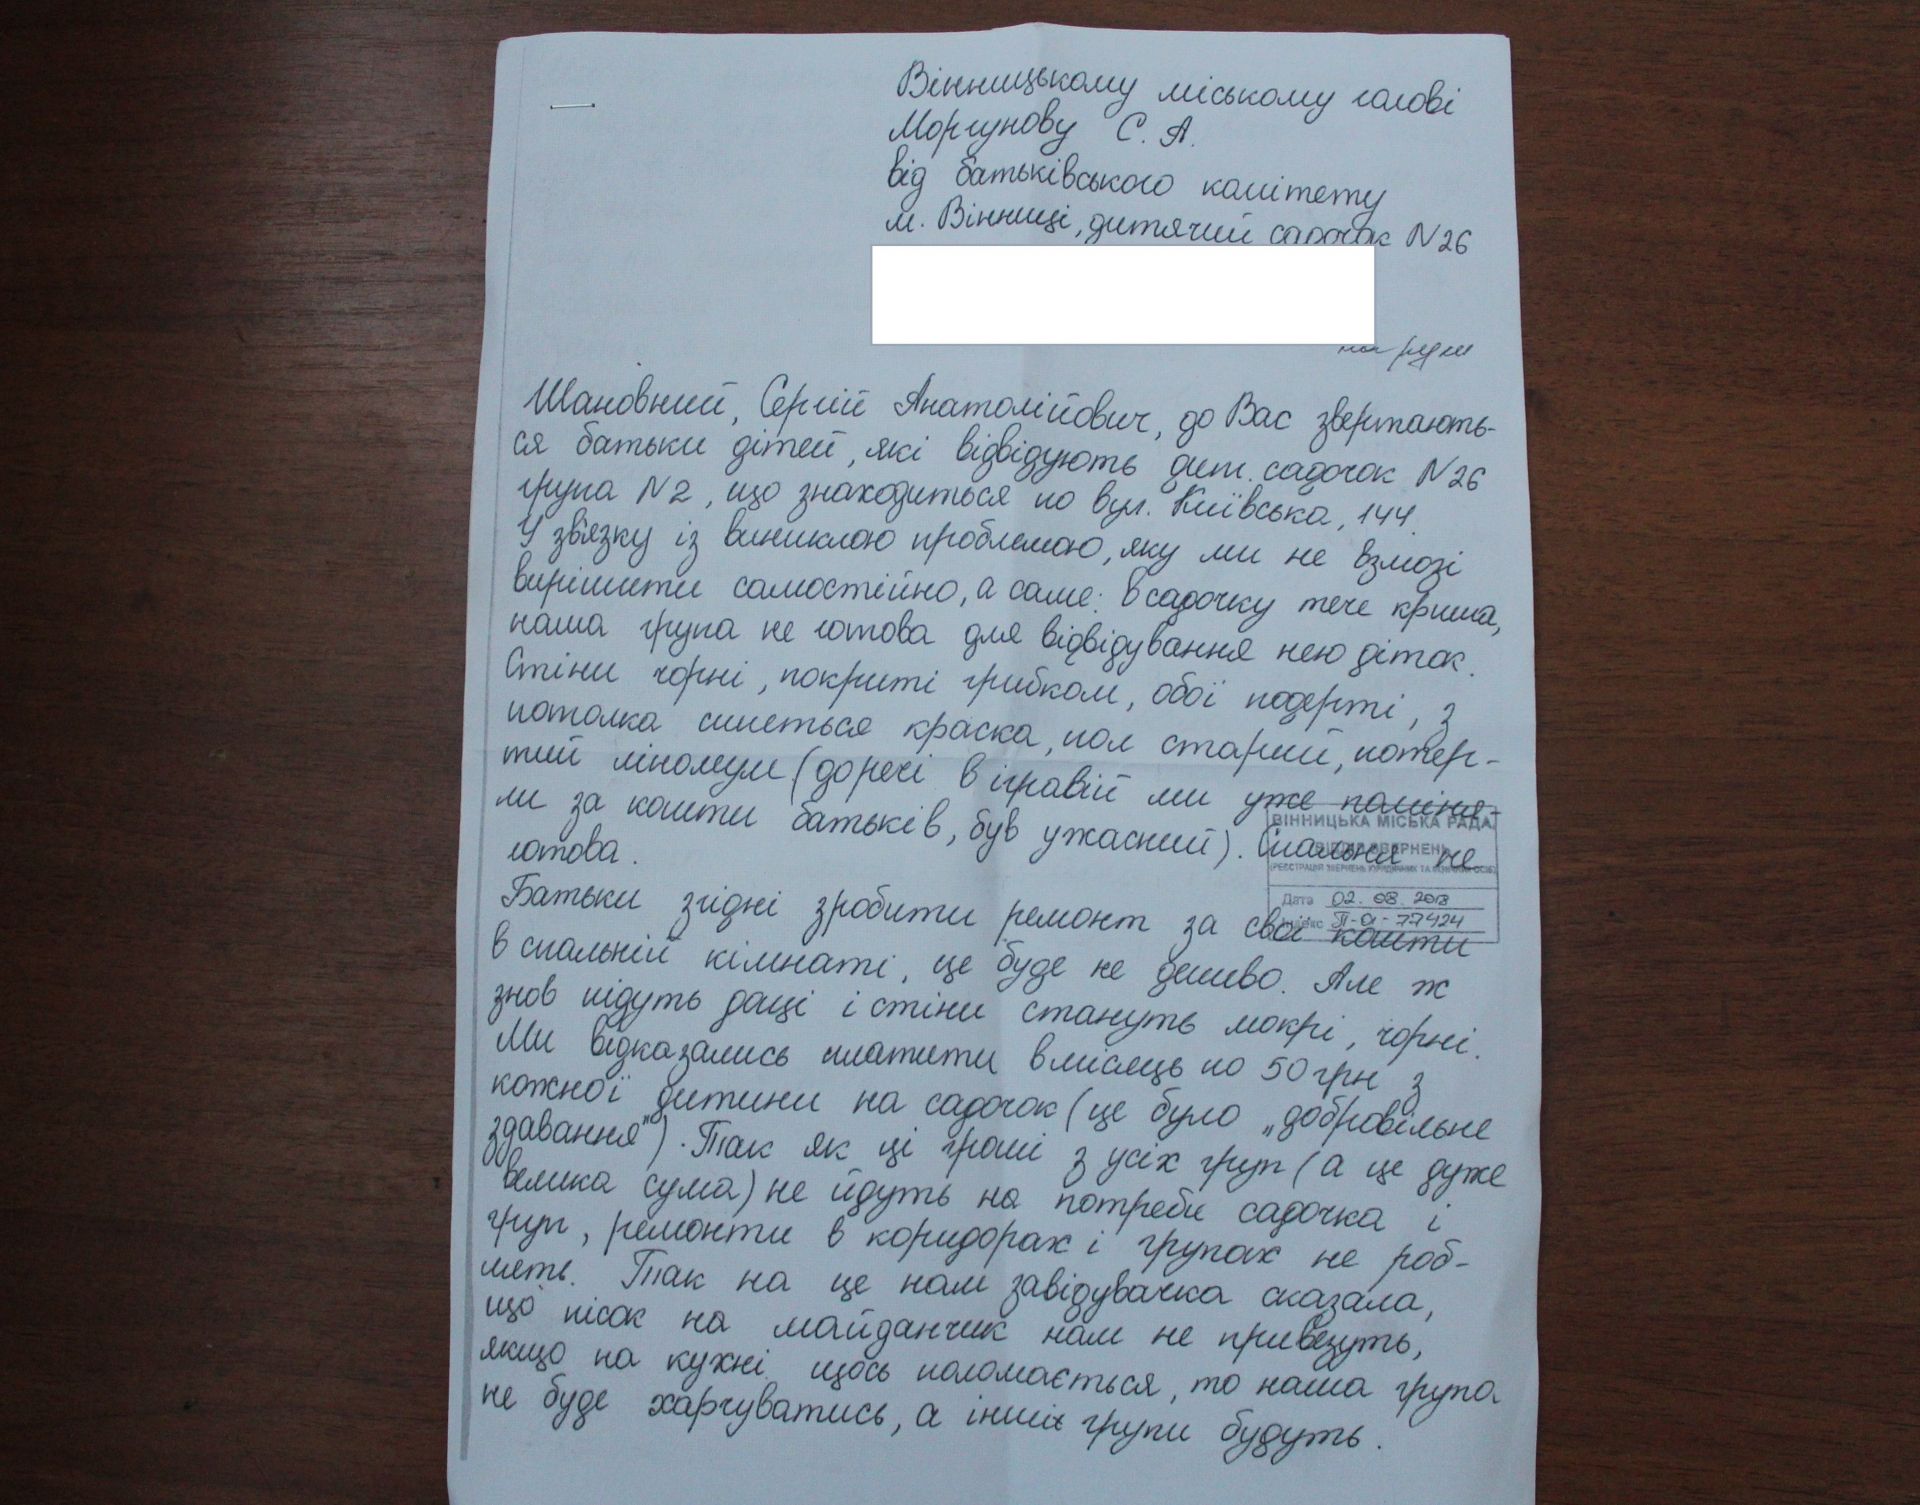 Вінницькому міському голові
Моргунову С. А.
від батьківського комітету
м. Вінниці, дитячий садочок N 26
на руки
Шановний, Сергій Анатолійович, до Вас звертають-
ся батьки дітей, які відвідують дит. садочок N 26
група N 2, що знаходиться по вул. Київська, 144.
У звязку із виниклою проблемою, яку ми не взмозі
вирішити самостійно, а саме: в садочку тече криша,
наша група не готова для відвідування нею діток.
Стіни чорні, покриті грибком, обої подерті, з
потолка сипеться краска, пол старий, потер-
тий лінолеум (доречі в ігравій ми уже поміня-
ли за кошти батьків, був ужасний). Спальня не
готова.
ВІННИЦЬКА МІСЬКА РАДА
ВІДДІЛ ЗВЕРНЕНЬ
(РЕЄСТРАЦІЯ ЗВЕРНЕНЬ ЮРИДИЧНИХ ТА ФІЗИЧНИХ ОСІБ)
Дата 02. 08. 2018
Індекс П-01-77424
Батьки згідні зробити ремонт за свої кошти
в спальній кімнаті, це буде не дешево. Але ж
знов підуть дощі і стіни стануть мокрі, чорні.
Ми відказались платити в місяць по 50 грн з
кожної дитини на садочок (це було „добровільне
здавання"). Так як ці гроші з усіх груп (а це дуже
велика сума) не йдуть на потреби садочка і
груп, ремонти в коридорах і групах не роб-
лять. Так на це нам завідувачка сказала,
що пісок на майданчик нам не привезуть,
якщо на кухні щось поломається, то наша група
не буде харчуватись, а інших групи будуть.